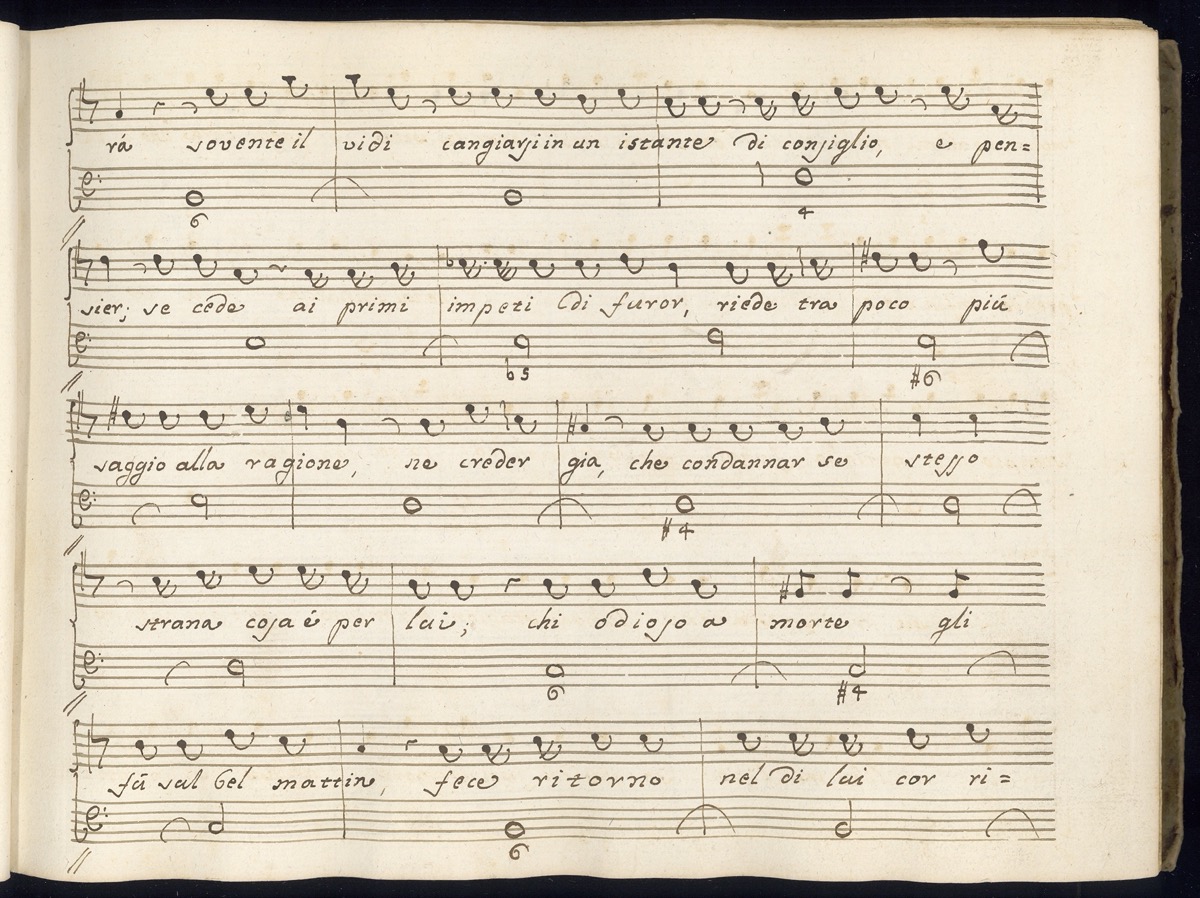 rá sovente il vidi cangiarsi in un istante di consiglio, e pen=
6 6 4
sier; se cede ai primi impeti di furor, riede tra poco più
b5 #6
saggio alla ragione, ne creder gia, che condannar se stesso
#4
strana cosa é per lui; chi odioso a morte gli
6 #4
fú sul bel mattin, fece ritorno nel di lui cor ri=
6